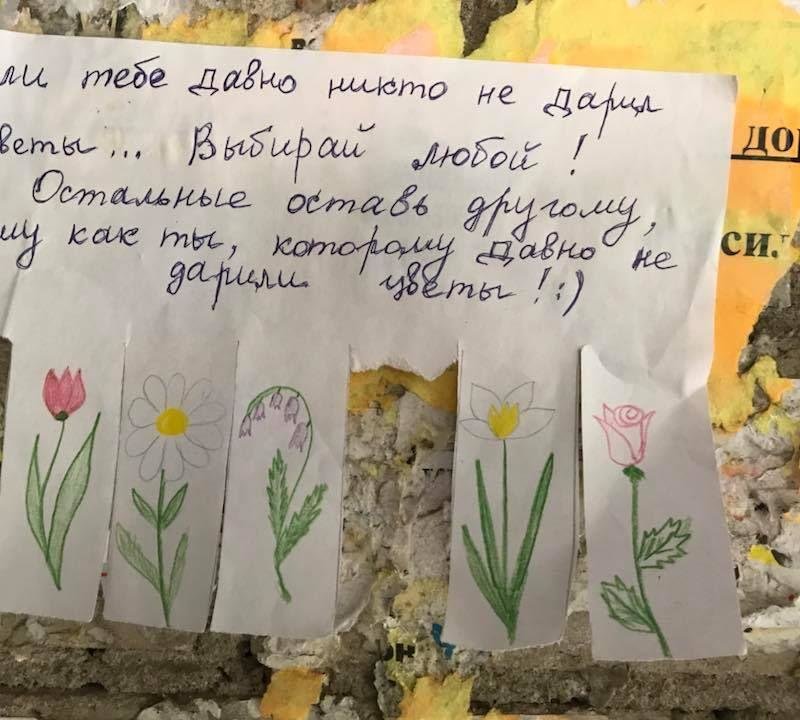 ли тебе давно никто не дарил
веты... Выбирай любой!
Остальные оставь другому,
му как ты, которому давно не
дарили цветы! :)
дор
си.